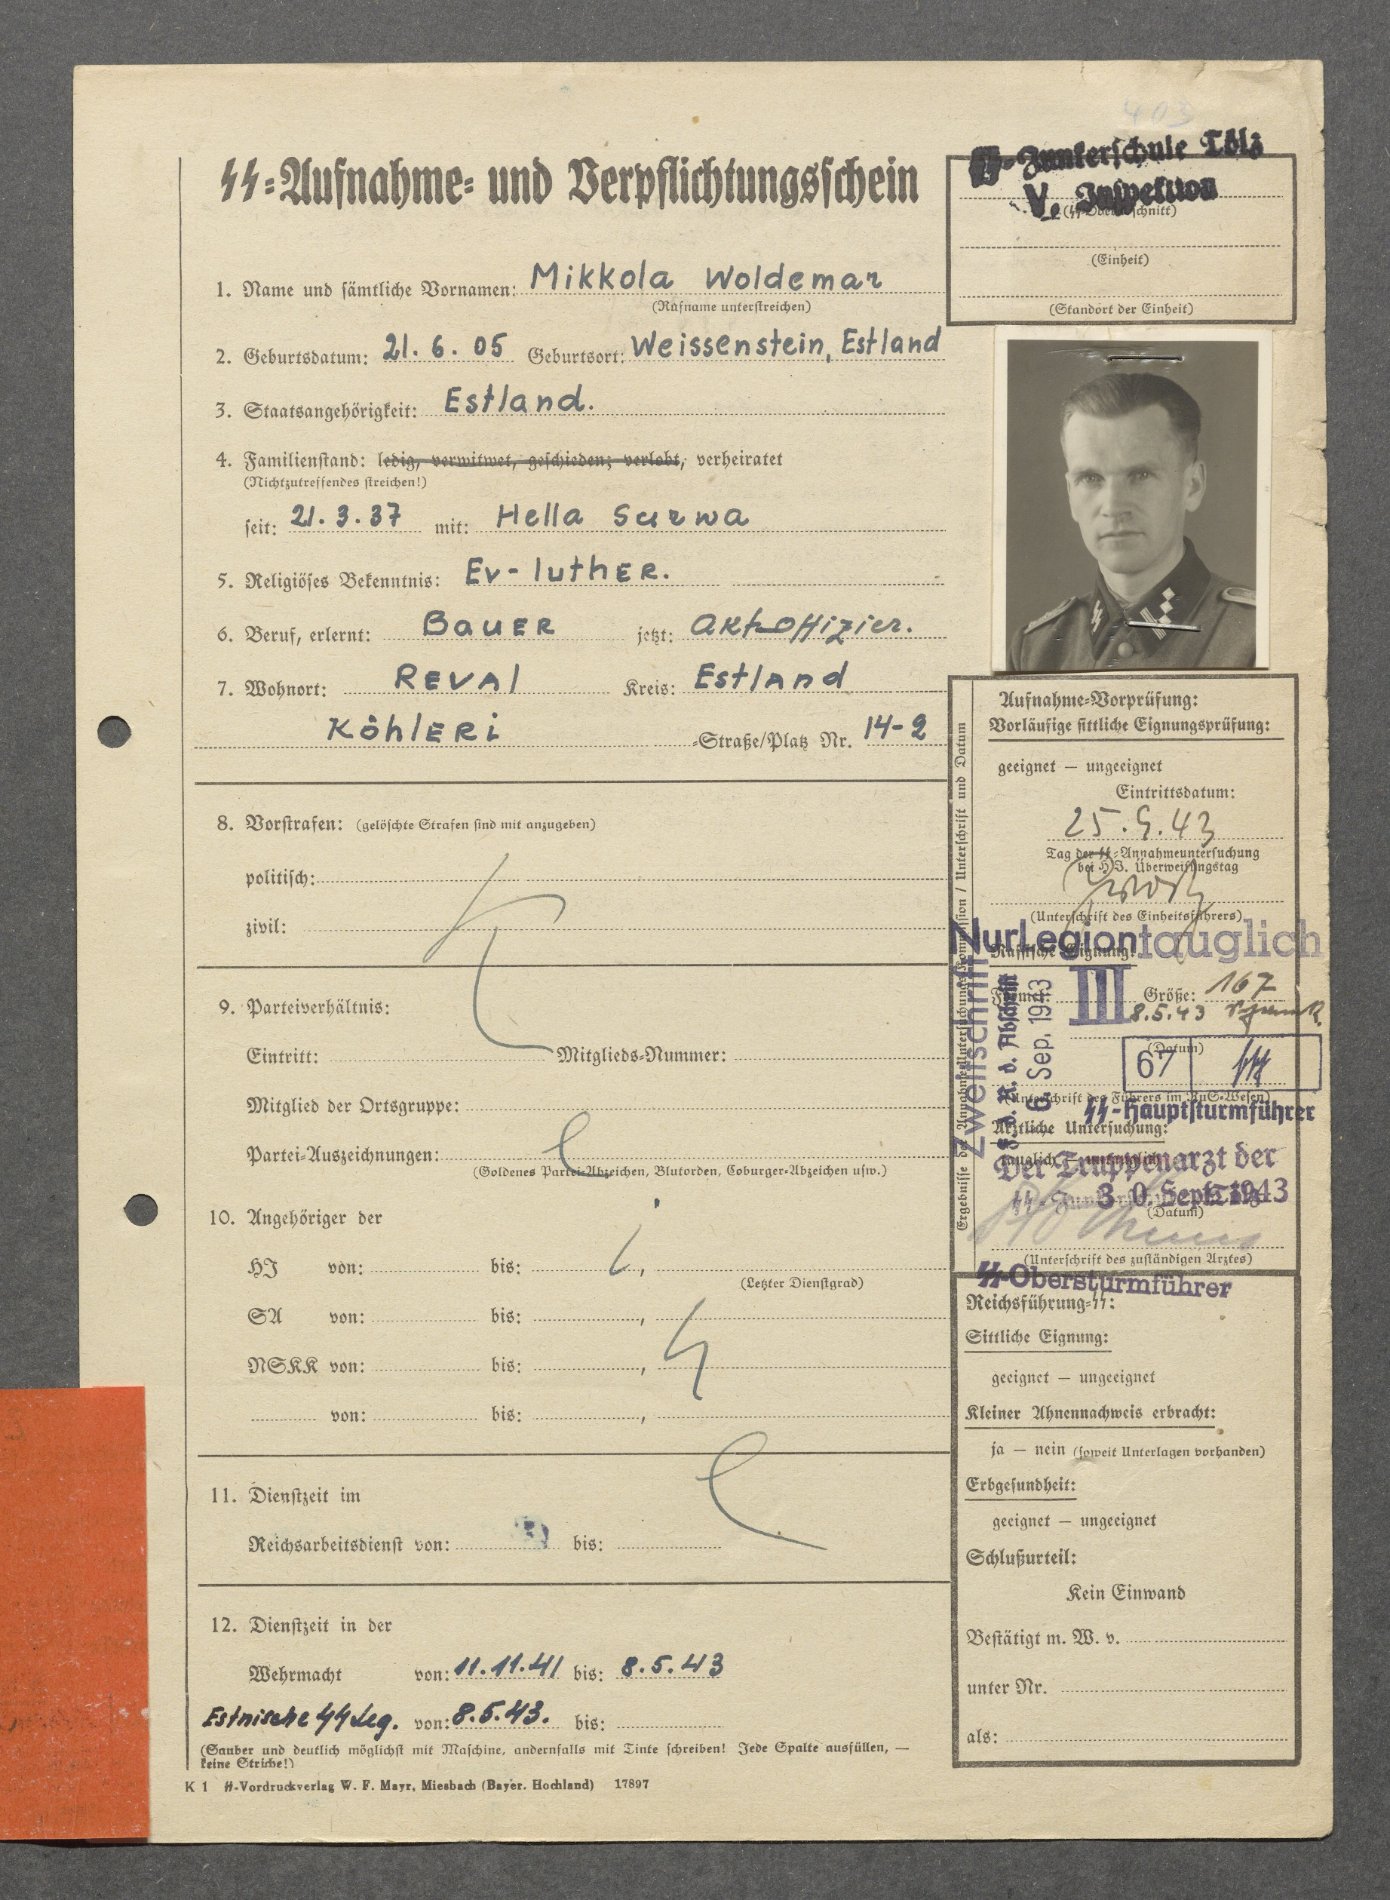 403
SS-Junkerschule Tölz
V. Inspektion
(SS-Oberabschnitt)
(Einheit)
(Standort der Einheit)
SS-Aufnahme- und Verpflichtungsschein
1. Name und sämtliche Vornamen: Mikkola Woldemar
(Rufname unterstreichen)
2. Geburtsdatum: 21. 6. 05 Geburtsort: Weissenstein, Estland
3. Staatsangehörigkeit: Estland.
4. Familienstand: ledig, verwitwet, geschieden; verlobt, verheiratet
(Nichtzutreffendes streichen!)
seit: 21. 3. 37 mit: Hella Surwa
5. Religiöses Bekenntnis: Ev-luthER.
6. Beruf, erlernt: BauER jetzt: akt-offizier.
7. Wohnort: REVAl Kreis: EstlAnd
KöhlERi -Straße/Platz Nr. 14-2
8. Vorstrafen: (gelöschte Strafen sind mit anzugeben)
politisch:
zivil:
9. Parteiverhältnis:
Eintritt: Mitglieds-Nummer:
Mitglied der Ortsgruppe:
Partei-Auszeichnungen:
(Goldenes Partei-Abzeichen, Blutorden, Coburger-Abzeichen usw.)
Keine
10. Angehöriger der
HJ von: bis: ,
(Letzter Dienstgrad)
SA von: bis: ,
NSKK von: bis: ,
von: bis: ,
11. Dienstzeit im
Reichsarbeitsdienst von: bis:
12. Dienstzeit in der
Wehrmacht von: 11.11.41 bis: 8.5.43
Estnische SS Leg. von: 8.5.43. bis:
(Sauber und deutlich möglichst mit Maschine, andernfalls mit Tinte schreiben! Jede Spalte ausfüllen, —
keine Striche!)
K 1 SS-Vordruckverlag W. F. Mayr, Miesbach (Bayer. Hochland) 17897
Ergebnisse der Annahmeuntersuchungskommission / Unterschrift und Datum
Aufnahme-Vorprüfung:
Vorläufige sittliche Eignungsprüfung:
geeignet — ungeeignet
Eintrittsdatum:
25.9.43
Tag der SS-Annahmeuntersuchung
bei HJ. Überweisungstag
(Unterschrift des Einheitsführers)
Nur Legion tauglich
Rassische Eignung:
Formel: III Größe: 167
8.5.43
(Datum)
67
(Unterschrift des Führers im RuS-Wesen)
SS-Hauptsturmführer
Zweitschrift
F. d. R. d. Abschrift
6. Sep. 1943
Ärztliche Untersuchung:
tauglich — untauglich
Der Truppenarzt der
SS-Junkerschule Tölz
30. Sept. 1943
(Datum)
(Unterschrift des zuständigen Arztes)
SS-Obersturmführer
Reichsführung-SS:
Sittliche Eignung:
geeignet — ungeeignet
Kleiner Ahnennachweis erbracht:
ja — nein (soweit Unterlagen vorhanden)
Erbgesundheit:
geeignet — ungeeignet
Schlußurteil:
Kein Einwand
Bestätigt m. W. v.
unter Nr.
als: